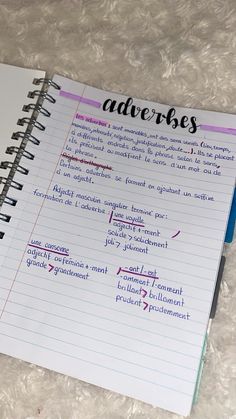 adverbes
Les adverbes : sont invariables, ont des sens variés (lieu, temps,
manière, intensité, négation, justification, doute ...). Ils se placent
à différents endroits dans la phrase selon le sens,
ils précisent ou modifient le sens d'un mot ou de
la phrase.
règles d'orthographe
Certains adverbes se forment en ajoutant un suffixe
à un adjectif.
Adjectif masculin singulier terminé par:
formation de l'adverbe
une voyelle
adjectif + -ment
solide > solidement
joli > joliment
une consonne
adjectif au féminin + -ment
grande > grandement
-ant / -ent
-amment / -emment
brillant > brillamment
prudent > prudemment